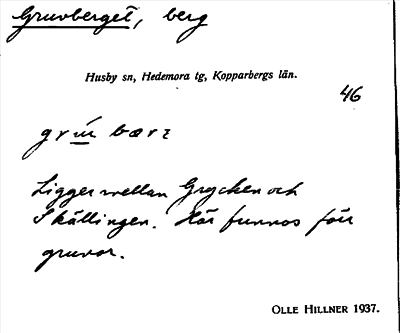 Gruvberget, berg
Husby sn, Hedemora tg, Kopparbergs län.
46
Ligger mellan Grycken och
Skällingen. Här funnos förr
gruvor.
OLLE HILLNER 1937.